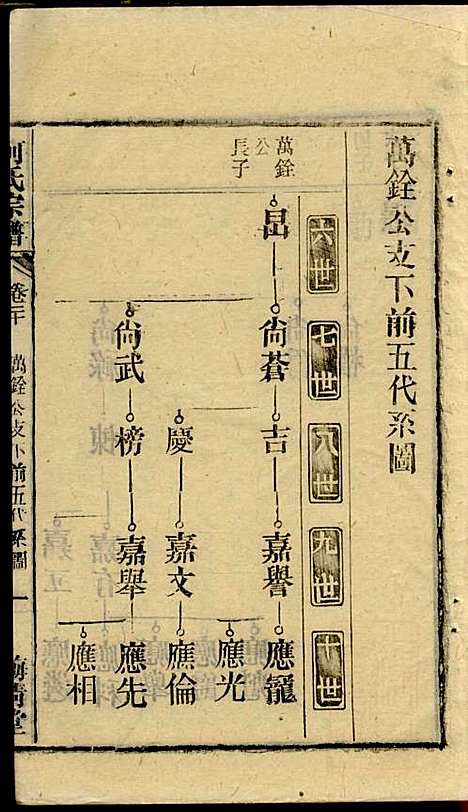 萬銓公支下前五代系圖
六世 七世 八世 九世 十世
萬銓
公
長子
呂 尙蒼 吉 嘉譽 應寵
應光
慶 嘉文 應倫
尙武 榜 嘉舉 應先
應相
氏宗譜 卷二十 萬銓公支下前五代系圖 一